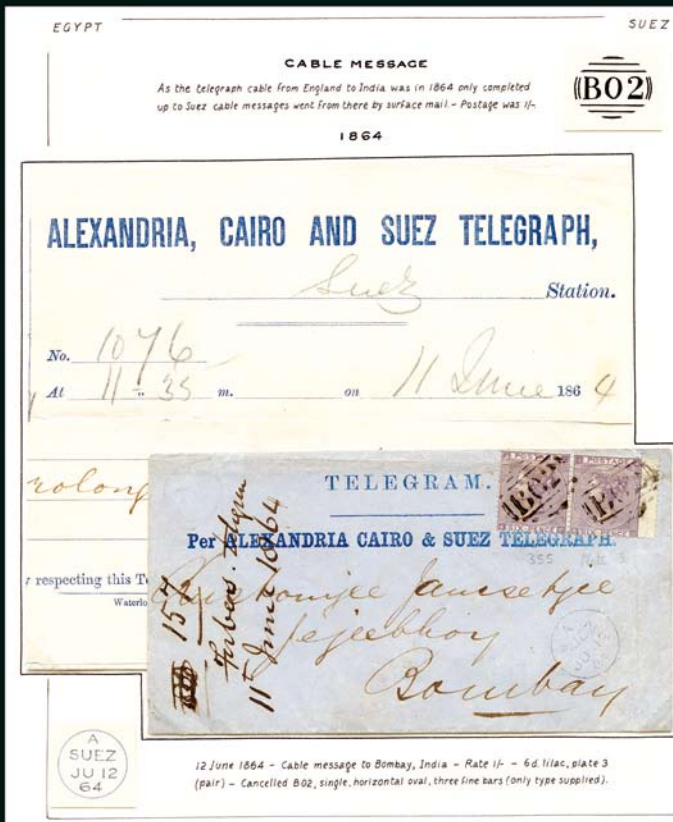 EGYPT
SUEZ
CABLE MESSAGE
As the telegraph cable from England to India was in 1864 only completed
up to Suez cable messages went from there by surface mail. - Postage was 1/-.
B02
1864
ALEXANDRIA, CAIRO AND SUEZ TELEGRAPH,
Suez Station.
No. 1076
At 11 " 35 m. on 11 June 1864
rolong
respecting this Te
Waterlo
TELEGRAM.
Per ALEXANDRIA CAIRO & SUEZ TELEGRAPH.
B02
B02
POSTAGE
POSTAGE
SIX PENCE
355
Jamsetjee
Jejeebhoy
Bombay
157
Forbes. telegram
11 June 1864
A
SUEZ
JU 12
64
A
SUEZ
JU 12
64
12 June 1864 - Cable message to Bombay, India - Rate 1/- - 6d. lilac, plate 3
(pair) - Cancelled B02, single, horizontal oval, three fine bars (only type supplied).